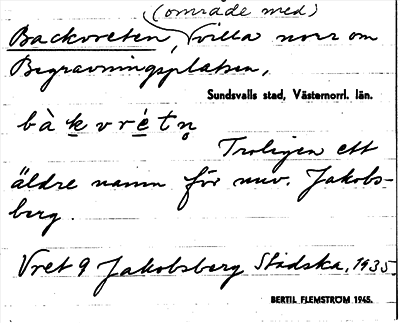 (område med)
Backvreten, villa norr om
Begravningsplatsen,
Sundsvalls stad, Västernorrl. län.
bàkvrétn̥
Troligen ett
äldre namn för nuv. Jakobs-
berg.
Vret 9 Jakobsberg Stadska, 1935.
BERTIL FLEMSTRÖM 1945.